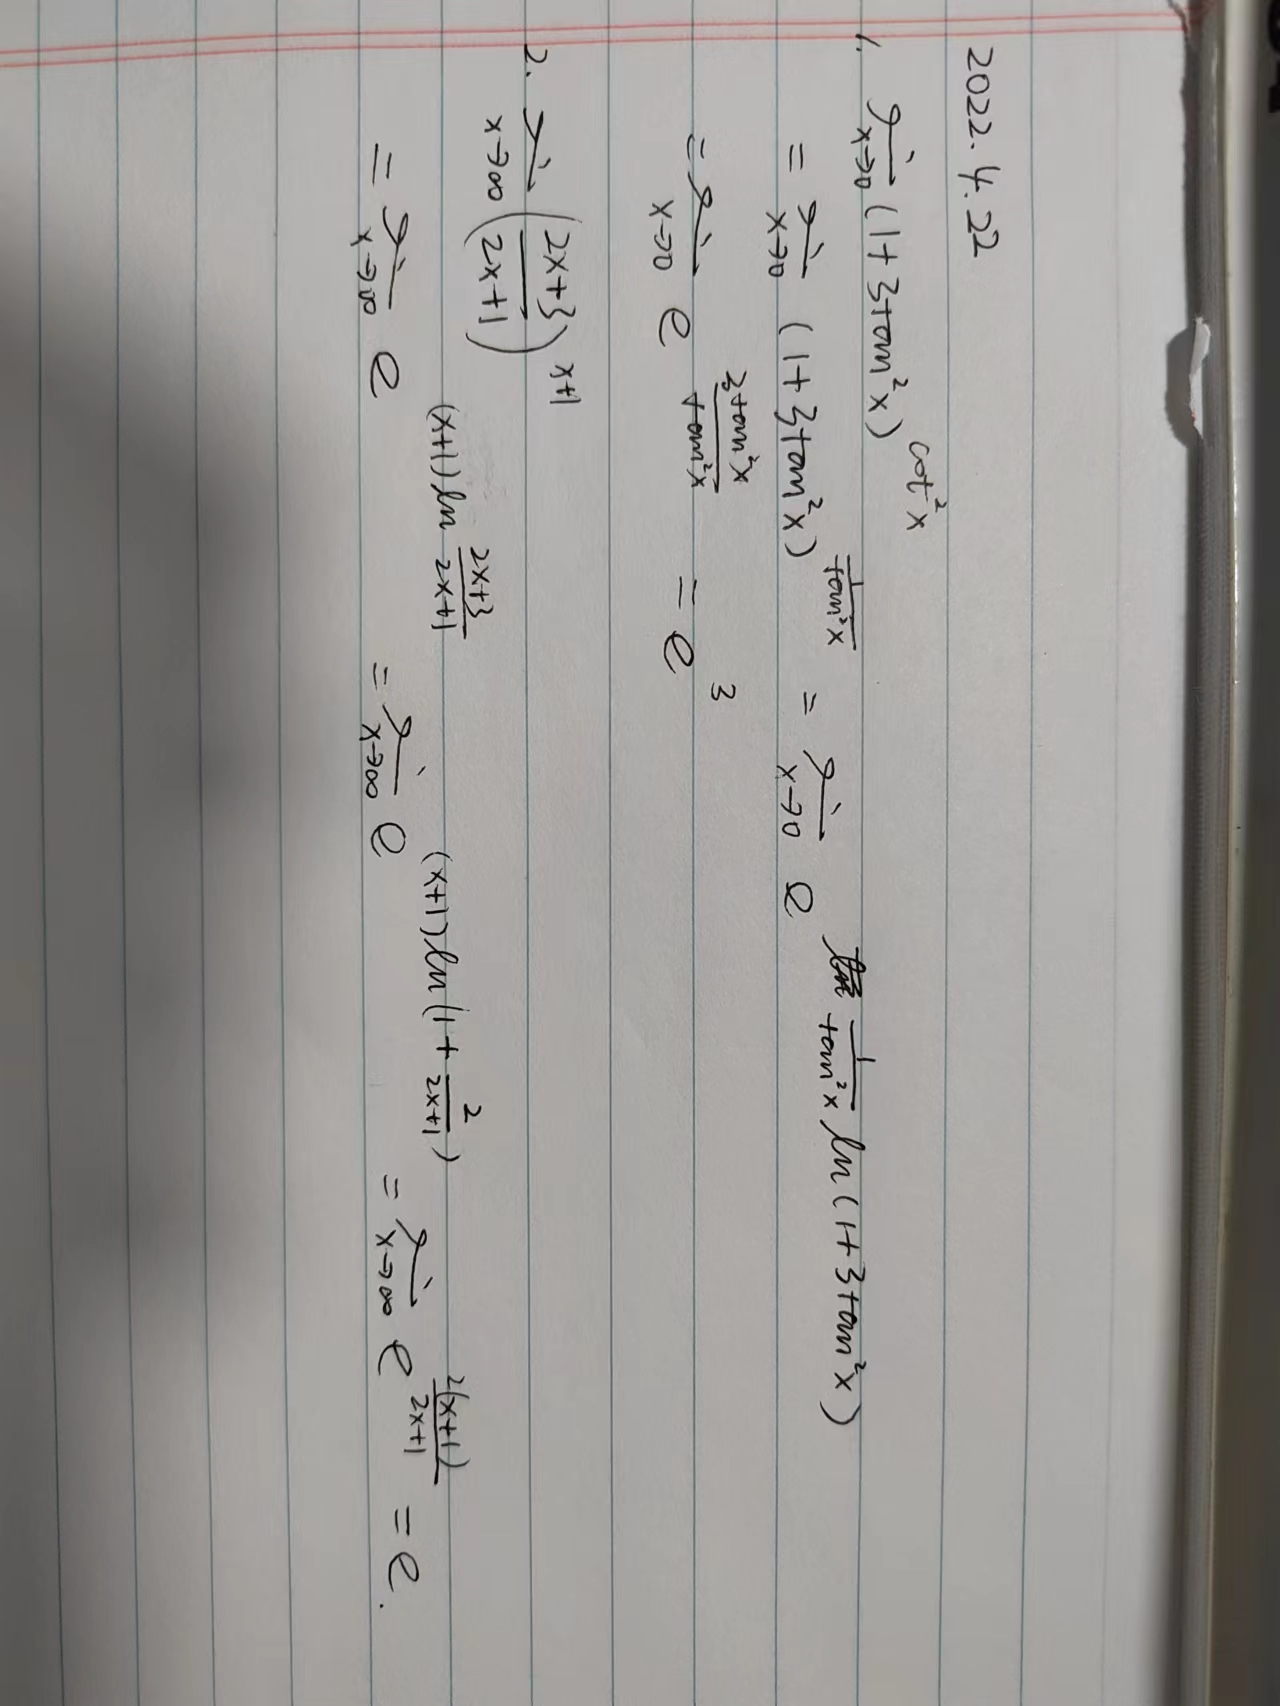 2022.4.22
1. lim x→0 (1+3tan²x)^cot²x
= lim x→0 (1+3tan²x)^(1/tan²x) = lim x→0 e^(1/tan²x ln(1+3tan²x))
= lim x→0 e^(3tan²x/tan²x) = e³
2. lim x→∞ ((2x+3)/(2x+1))^(x+1)
= lim x→∞ e^((x+1)ln (2x+3)/(2x+1)) = lim x→∞ e^((x+1)ln(1+2/(2x+1))) = lim x→∞ e^(2(x+1)/(2x+1)) = e.